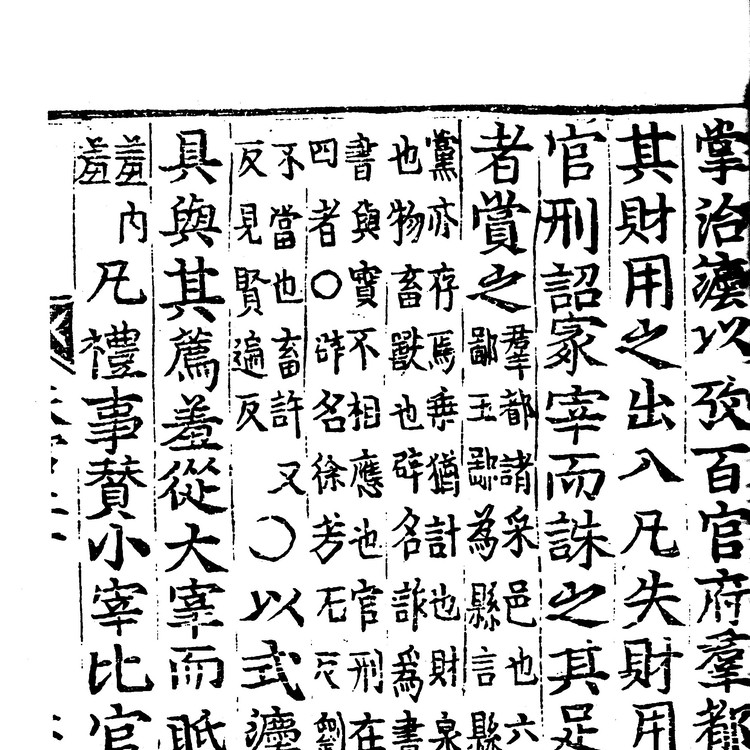 掌治灋以攷百官府羣都
其財用之出入凡失財用
官刑詔冡宰而誅之其足
者賞之
羣都諸采邑也六
鄙王鄙為縣言縣
黨亦存焉乗猶計也財泉
也物畜獸也辟名詐爲書
書與實不相應也官刑在
四者○辟名徐芳石反劉
不當也畜許又
反見賢遍反
○以式灋
具與其薦羞從大宰而眡
羞内
羞
凡禮事賛小宰比官